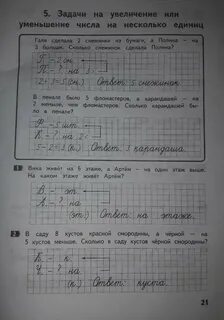 5. Задачи на увеличение или
уменьшение числа на несколько единиц
Галя сделала 2 снежинки из бумаги, а Полина – на
3 больше. Сколько снежинок сделала Полина?
Г. – 2 сн.
П. – ? на 3
2+3=5(сн.) Ответ: 5 снежинок.
В пенале было 5 фломастеров, а карандашей – на
2 меньше, чем фломастеров. Сколько карандашей было
в пенале?
Ф. – 5 шт.
К. – ? на 2
5-2=3(к.) Ответ: 3 карандаша.
1 Вика живёт на 6 этаже, а Артём – на один этаж выше.
На каком этаже живёт Артём?
В – эт.
А – ? на
(эт.) Ответ: на этаже.
2 В саду 8 кустов красной смородины, а чёрной – на
5 кустов меньше. Сколько в саду кустов чёрной смородины?
К. – к.
Ч. – ? на
(к.) Ответ: куста.
21